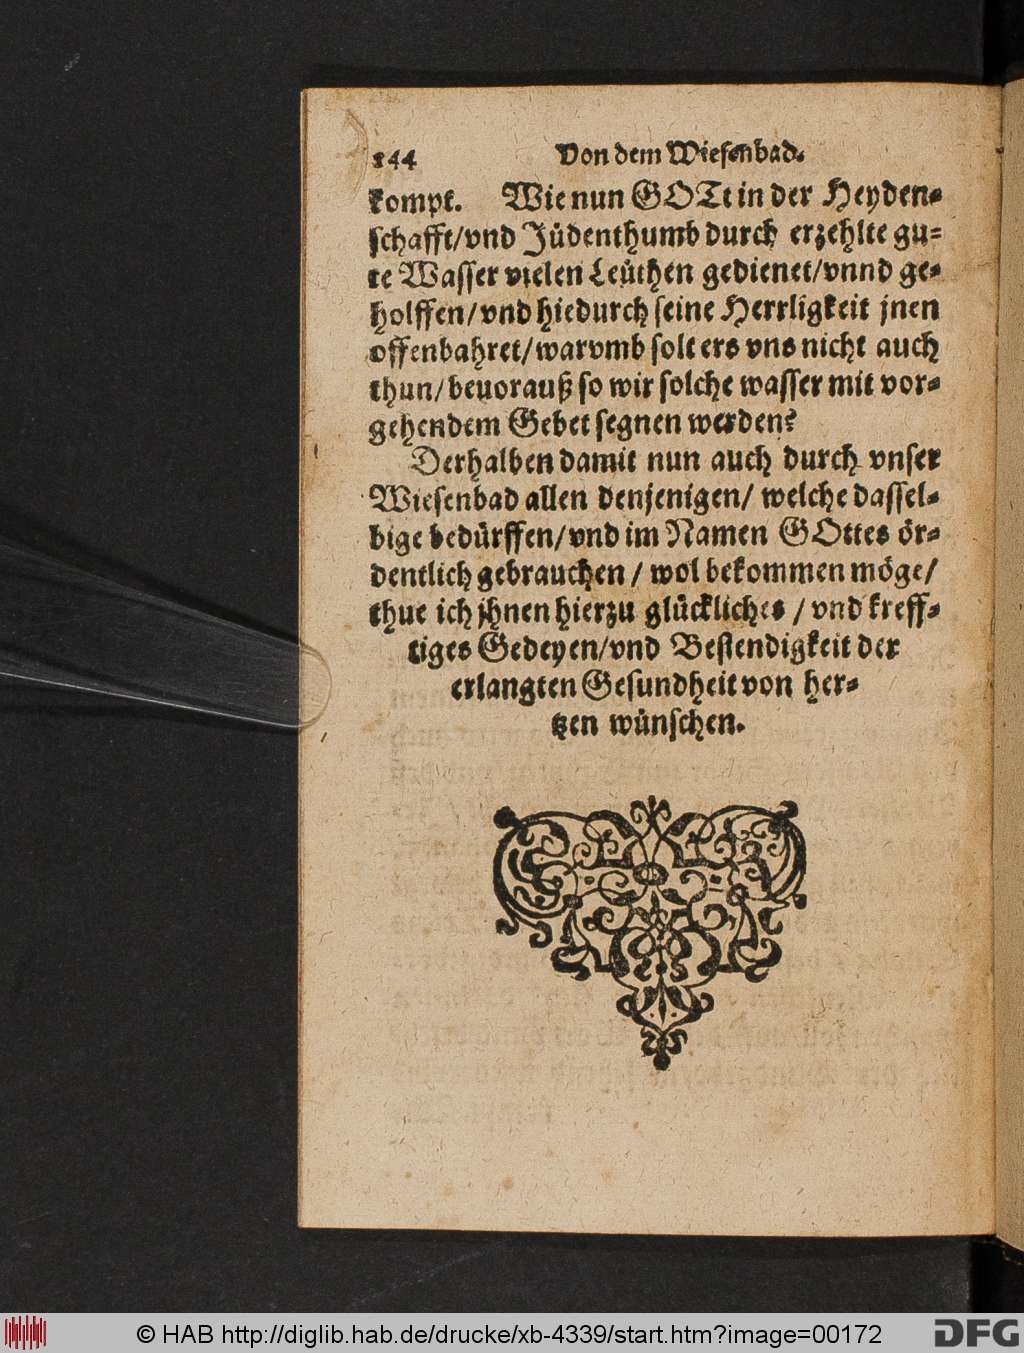 144 Von dem Wiesenbad.
kompt. Wie nun GOTt in der Heyden-
schafft/vnd Jüdenthumb durch erzehlte gu-
te Wasser vielen Leüthen gedienet/vnnd ge-
holffen/vnd hiedurch seine Herrligkeit jnen
offenbahret/warvmb solt ers vns nicht auch
thun/beuorauß so wir solche wasser mit vor-
gehendem Gebet segnen werden?
Derhalben damit nun auch durch vnser
Wiesenbad allen denjenigen/ welche dassel-
bige bedürffen/vnd im Namen GOttes ör-
dentlich gebrauchen / wol bekommen möge/
thue ich jhnen hierzu glückliches / vnd kreff-
tiges Gedeyen/vnd Bestendigkeit der
erlangten Gesundheit von her-
tzen wünschen.
© HAB http://diglib.hab.de/drucke/xb-4339/start.htm?image=00172 DFG